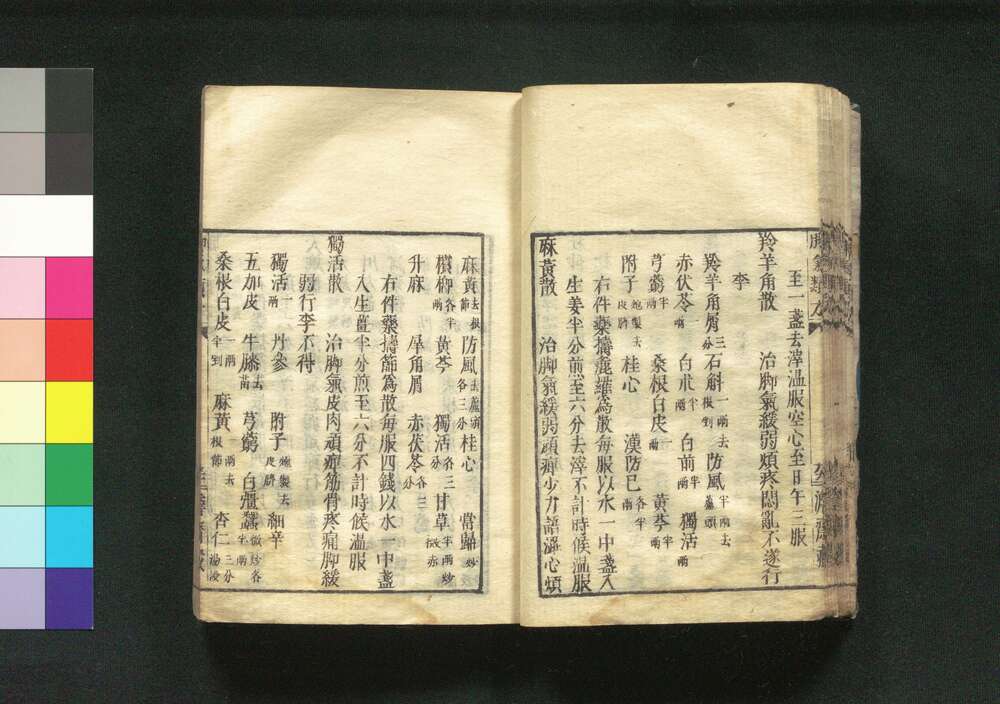 至一盞去滓温服空心至日午三服
羚羊角散　治脚氣緩弱煩疼悶亂不遂行
李
羚羊角屑三分石斛一兩去根剉防風半兩去蘆頭
赤茯苓半兩　白朮半兩　白前半兩　獨活半兩
芎藭半兩　桑根白皮一兩　黄芩半兩
附子炮製去皮臍　桂心　漢防已各半兩
右件藥擣麄羅為散每服以水一中盞入
生姜半分煎至六分去滓不計時候温服
麻黄散　治脚氣緩弱頑痹少力語澁心煩
麻黄去根節　防風去蘆頭各三分　桂心　當歸炒
檳榔各半兩　黄芩　獨活各三分　甘草半兩炒微赤
升麻　犀角屑　赤茯苓各三分
右件藥擣篩為散每服四錢以水一中盞
入生薑半分煎至六分不計時候温服
獨活散　治脚氣皮肉頑痹筋骨疼痛脚緩
弱行李不得
獨活一兩　丹參　附子炮製去皮臍　細辛
五加皮　牛膝去苗　芎藭　白殭蠶微炒各半兩
桑根白皮一兩半剉　麻黄一兩去根節　杏仁三分湯浸